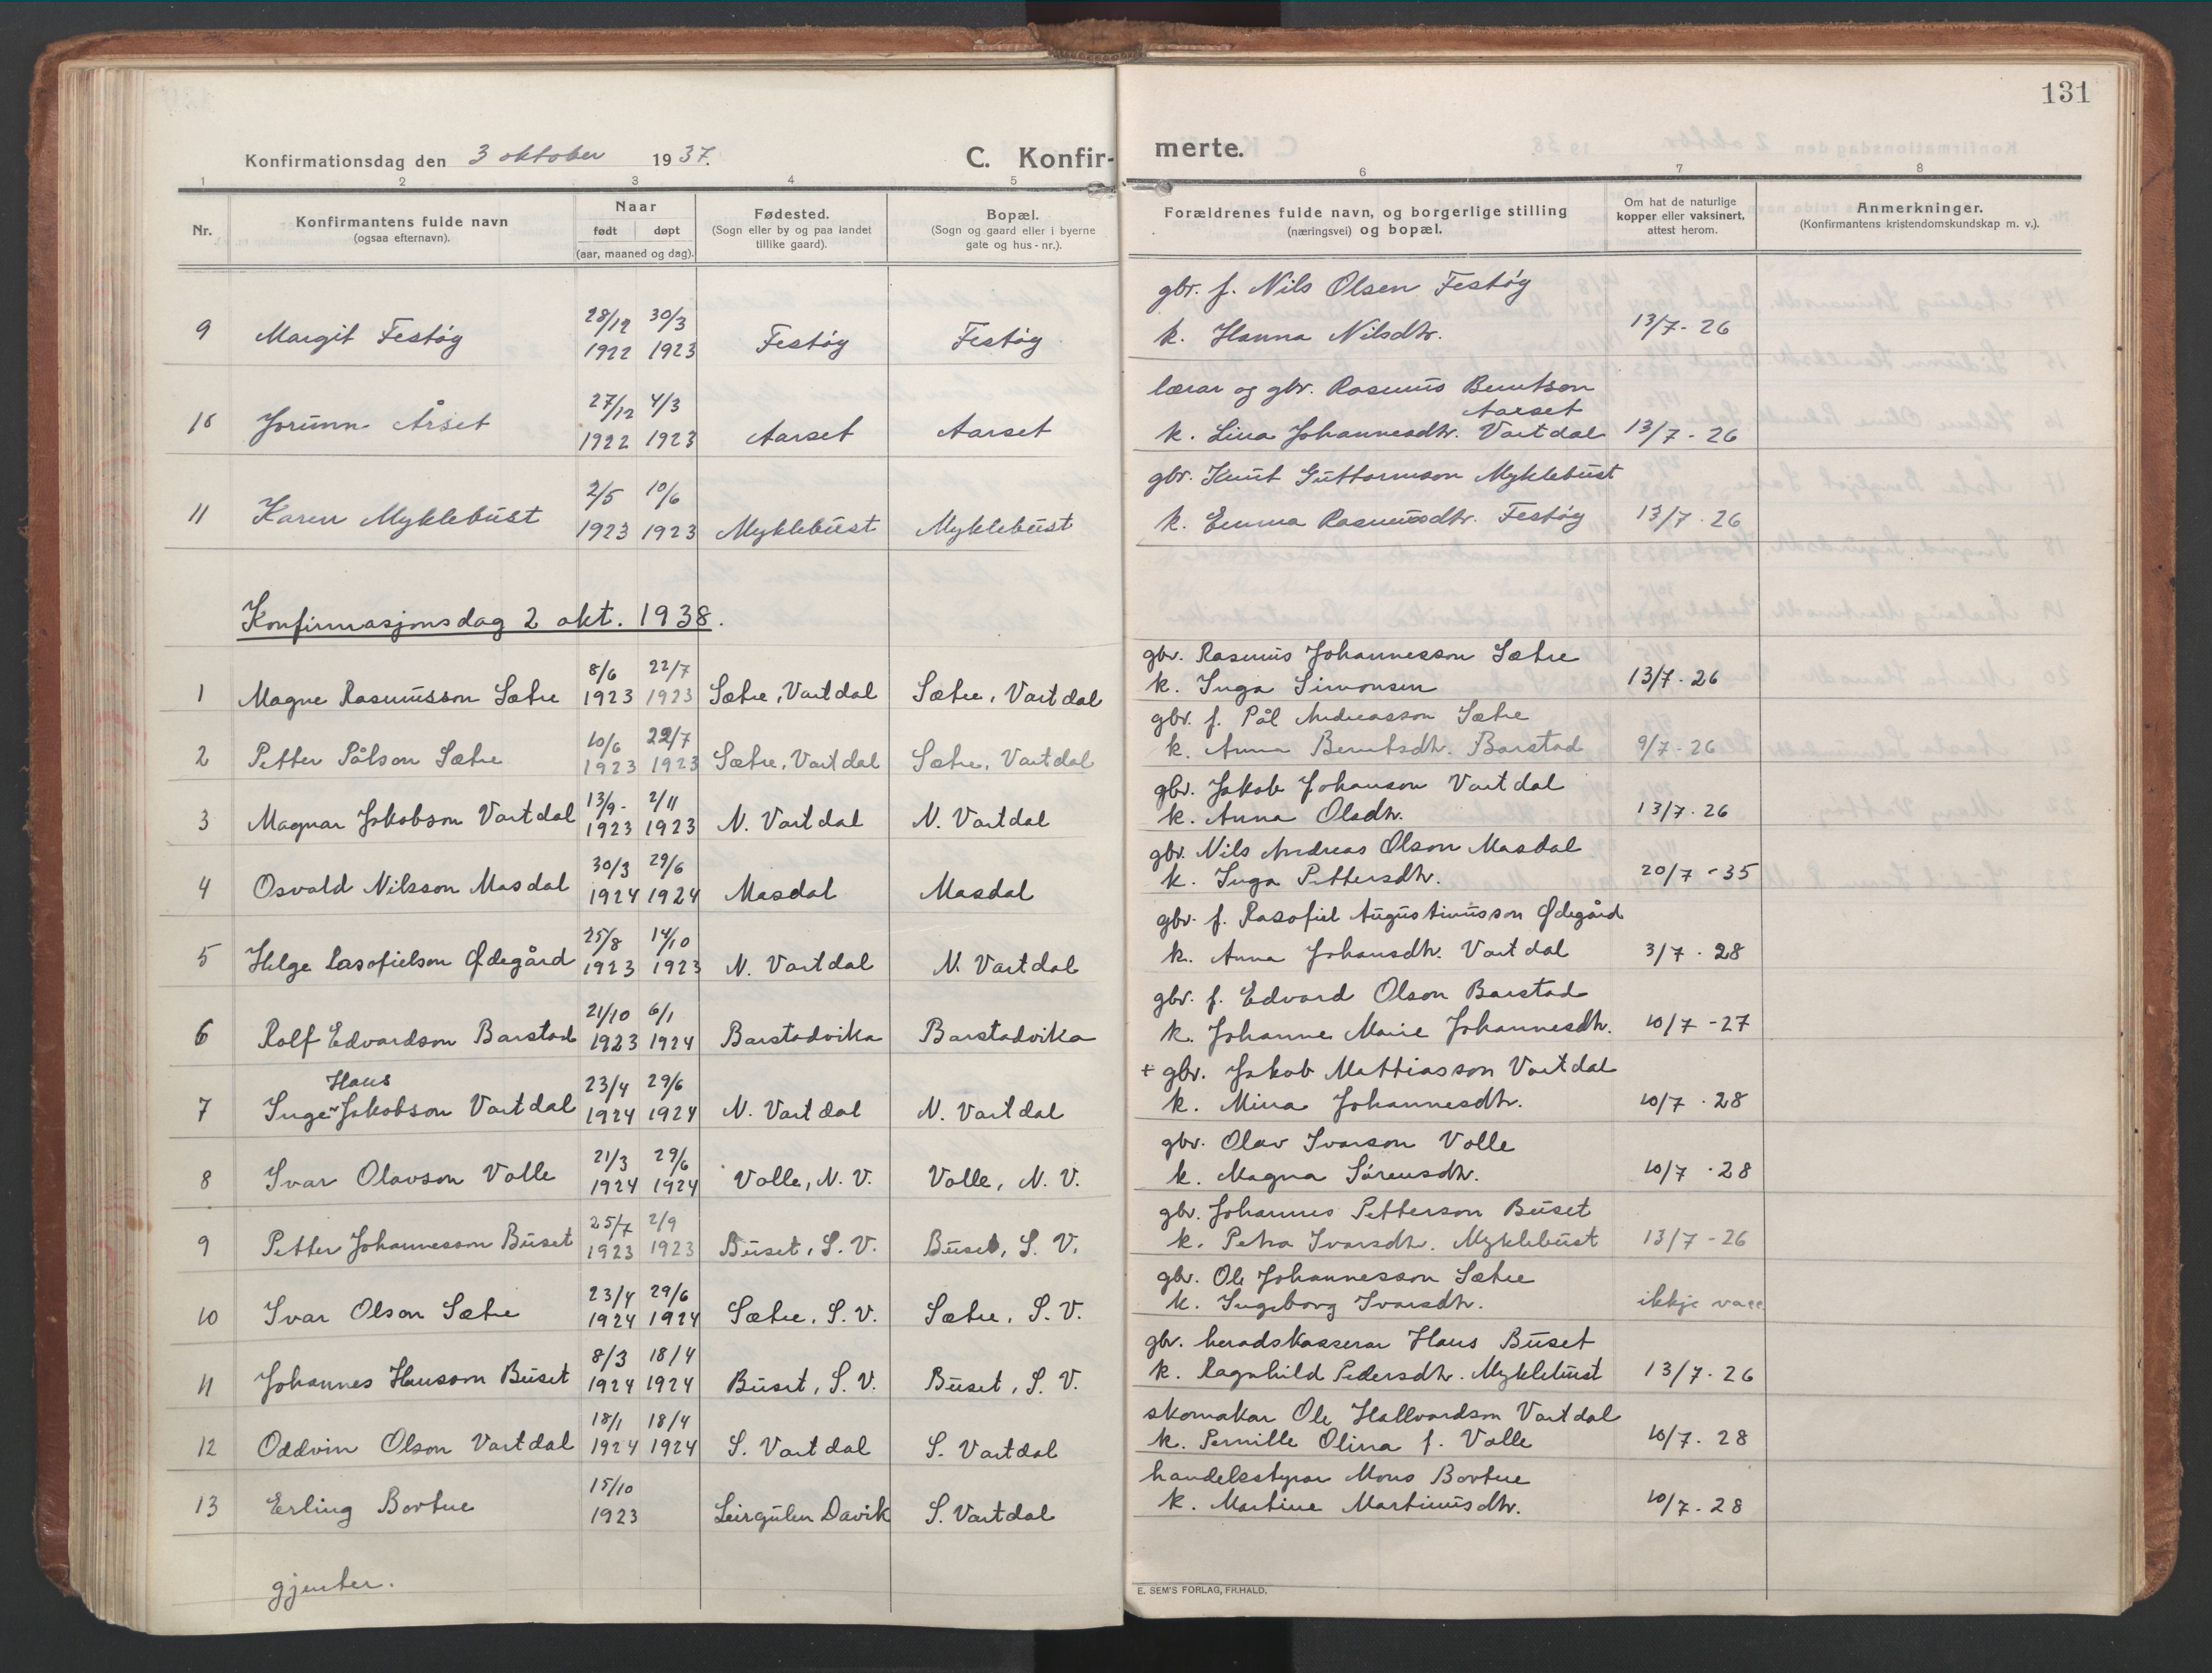 131
Konfirmationsdag den 3 oktober 1937.
C. Konfir-
merte.
1 2 3 4 5 6 7 8
Nr.
Konfirmantens fulde navn
(ogsaa efternavn).
Naar
født døpt
(aar, maaned og dag).
Fødested.
(Sogn eller by og paa landet
tillike gaard).
Bopæl.
(Sogn og gaard eller i byerne
gate og hus-nr.).
Forældrenes fulde navn, og borgerlige stilling
(næringsvei) og bopæl.
Om hat de naturlige
kopper eller vaksinert,
attest herom.
Anmerkninger.
(Konfirmantens kristendomskundskap m. v.).
28/12 30/3 gbr. f. Nils Olsen Festøy
9 Margit Festøy 1922 1923 Festøy Festøy k. Hanna Nilsdtr. 13/7-26
27/12 4/3 lærar og gbr. Rasmus Berntson
Aarset
10 Jorunn Årset 1922 1923 Aarset Aarset k. Lina Johannesdtr. Vartdal 13/7-26
2/5 10/6 gbr. Knut Guttormson Myklebust
11 Karen Myklebust 1923 1923 Myklebust Myklebust k. Emma Rasmusdtr. Festøy 13/7-26
Konfirmasjonsdag 2 okt. 1938.
8/6 22/7 gbr. Rasmus Johannesson Sætre
1 Magne Rasmusson Sætre 1923 1923 Sætre, Vartdal Sætre, Vartdal k. Inga Simonsen 13/7-26
10/6 22/7 gbr. f. Pål Andreasson Sætre
2 Petter Pålson Sætre 1923 1923 Sætre, Vartdal Sætre, Vartdal k. Anna Berntsdtr. Barstad 9/7-26
13/9- 2/11 gbr. Jakob Johanson Vartdal
3 Magnar Jakobson Vartdal 1923 1923 N. Vartdal N. Vartdal k. Anna Olsdtr. 13/7-26
30/3 29/6 gbr. Nils Andreas Olson Masdal
4 Osvald Nilsson Masdal 1924 1924 Masdal Masdal k. Inga Pettersdtr. 20/7-35
25/8 14/10 gbr. f. Rasofiel Augustinusson Ødegård
5 Helge Rasofielson Ødegård 1923 1923 N. Vartdal N. Vartdal k. Anna Johansdtr. Vartdal 3/7-28
21/10 6/1 gbr. f. Edvard Olson Barstad
6 Rolf Edvardson Barstad 1923 1924 Barstadvika Barstadvika k. Johanne Marie Johannesdtr. 10/7-27
Hans 23/4 29/6 + gbr. Jakob Mattiasson Vartdal
7 Inge Jakobson Vartdal 1924 1924 N. Vartdal N. Vartdal k. Mina Johannesdtr. 10/7-28
21/3 29/6 gbr. Olav Ivarson Valle
8 Ivar Olavson Valle 1924 1924 Valle, N. V. Valle, N. V. k. Magna Sørensdtr. 10/7-28
25/7 2/9 gbr. Johannes Petterson Buset
9 Petter Johannesson Buset 1923 1923 Buset, S. V. Buset, S. V. k. Petra Ivarsdtr. Myklebust 13/7-26
23/4 29/6 gbr. Ole Johannesson Sætre
10 Ivar Olson Sætre 1924 1924 Sætre, S. V. Sætre, S. V. k. Ingeborg Ivarsdtr. ikkje vacc
8/3 18/4 gbr. heradskasserar Hans Buset
11 Johannes Hansson Buset 1924 1924 Buset, S. V. Buset, S. V. k. Ragnhild Pedersdtr. Myklebust 13/7-26
18/1 18/4 skomakar Ole Hallvardson Vartdal
12 Oddvin Olson Vartdal 1924 1924 S. Vartdal S. Vartdal k. Pernille Olina f. Valle 10/7-28
15/10 handelsstyrar Mons Bortne
13 Erling Bortne 1923 Leirgulen Davik S. Vartdal k. Martine Martinusdtr. 10/7-28
gjenter.
E. SEM'S FORLAG, FR.HALD.